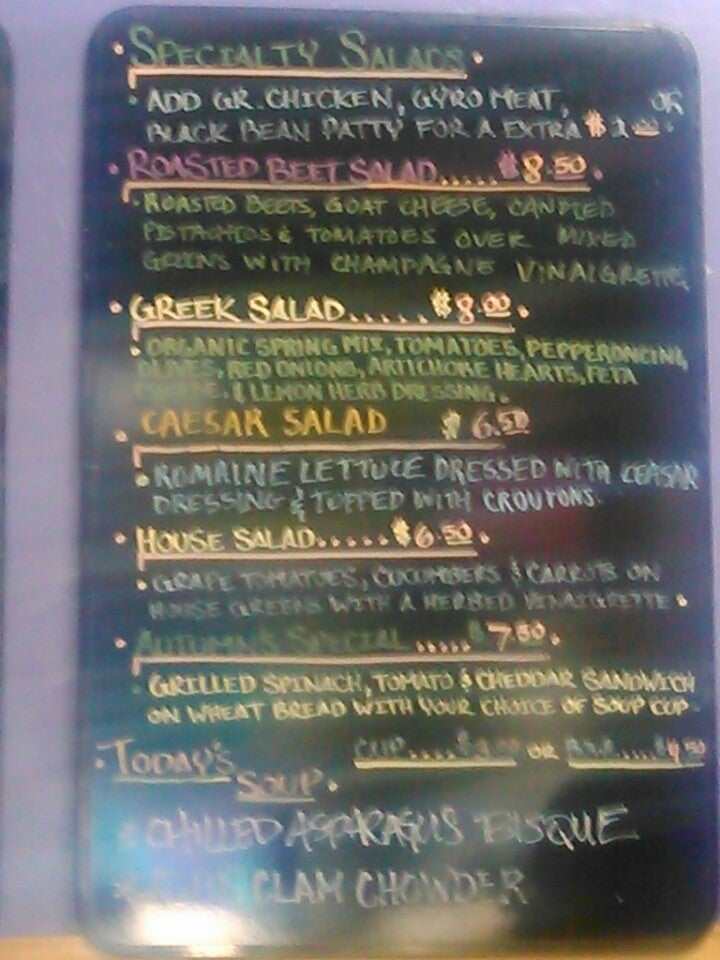 • SPECIALTY SALADS •
• ADD GR. CHICKEN, GYRO MEAT, OR
BLACK BEAN PATTY FOR A EXTRA $ 2.00 •
• ROASTED BEET SALAD..... $8.50 •
• ROASTED BEETS, GOAT CHEESE, CANDIED
PISTACHIOS & TOMATOES OVER MIXED
GREENS WITH CHAMPAGNE VINAIGRETTE.
• GREEK SALAD..... $8.00 •
• ORGANIC SPRING MIX, TOMATOES, PEPPERONCINI,
OLIVES, RED ONIONS, ARTICHOKE HEARTS, FETA
CHEESE & LEMON HERB DRESSING.
• CAESAR SALAD $6.50
• ROMAINE LETTUCE DRESSED WITH CEASAR
DRESSING & TOPPED WITH CROUTONS.
• HOUSE SALAD..... $6.50 •
• GRAPE TOMATOES, CUCUMBERS & CARROTS ON
HOUSE GREENS WITH A HERBED VINAIGRETTE •
• AUTUMN'S SPECIAL ..... $7.50 •
• GRILLED SPINACH, TOMATO & CHEDDAR SANDWICH
ON WHEAT BREAD WITH YOUR CHOICE OF SOUP CUP.
• TODAY'S CUP.... OR $4.50
SOUP •
CHILLED ASPARAGUS BISQUE
CLAM CHOWDER